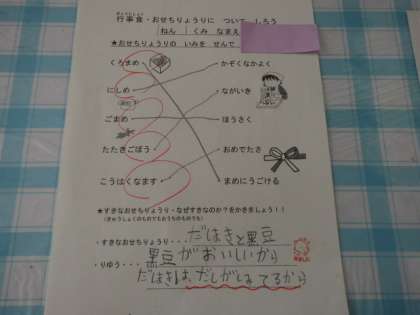 行事食・おせちりょうりに ついて しろう
ねん くみ なまえ
★おせちりょうりの いみを せんで
くろまめ
かぞくなかよく
にしめ
ながいき
ごまめ
ほうさく
たたきごぼう
おめでたさ
こうはくなます
まめにうごける
★すきなおせちりょうり・なぜすきなのか？をかきましょう！！
(きゅうしょくのものでもおうちのものでも)
・すきなおせちりょうり・・・だはきと黒豆
・りゆう・・・黒豆がおいしいから
だはきは、だしがしみてるから